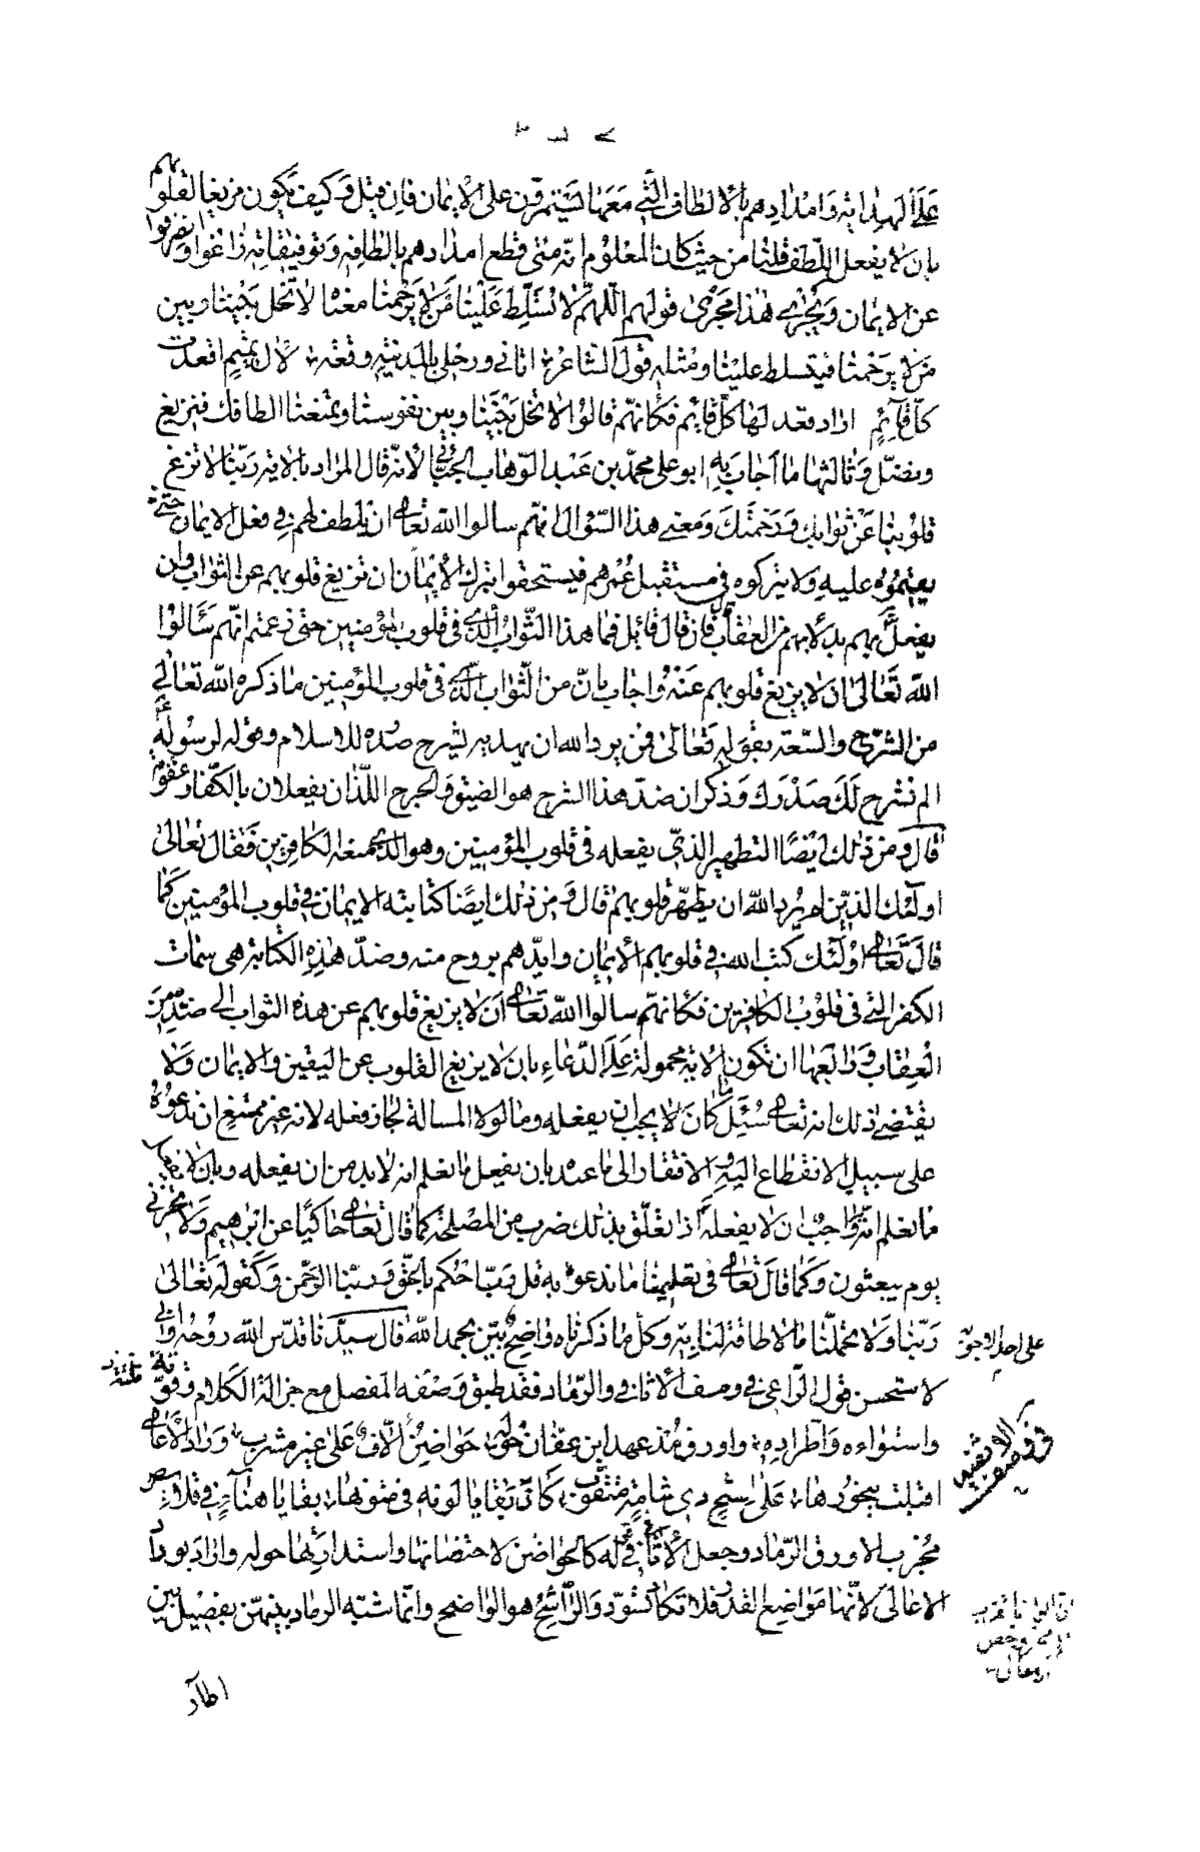 على الهداية وامدادهم بالالطاف التي معها يستمرّون على الايمان فان قيل وكيف يكون مزيغا لقلوبهم
بان لا يفعل اللّطف قلنا من حيث كان المعلوم انّه متى قطع امدادهم بالطافه وتوفيقاته زاغوا وانصرفوا
عن الايمان ويجري هذا مجرى قولهم اللّهمّ لا تسلّط علينا من لا يرحمنا معناه لا تخل بيننا وبين
من لا يرحمنا فيتسلط علينا ومثله قول الشاعر اتاني ورحلي بالمدينة وقعة لآل تميم اقعدت
كلّ قائم اراد قعد لها كلّ قائم فكانهم قالوا لا تخل بيننا وبين نفوسنا وتمنعنا الطافك فنزيغ
ونضلّ وثالثها ما اجاب به ابو على محمّد بن عبد الوهاب الجبّائي لانّه قال المراد بالاية ربّنا لا تزغ
قلوبنا عن ثوابك ورحمتك ومعنى هذا السّؤال انهم سالوا الله تعالى ان يلطف لهم في فعل الايمان حتى
يقيموا عليه ولا يتركوه في مستقبل عمرهم فيستحقوا بترك الايمان ان تزيغ قلوبهم عن الثواب وان
يفعل بهم بدلا منه العقاب فان قال قائل فما هذا الثّواب الّذي في قلوب المؤمنين حتى زعمتم انهم سالوا
الله تعالى ان لا يزيغ قلوبهم عنه واجاب بانّ من الثّواب الّذي في قلوب المؤمنين ما ذكره الله تعالى
من الشرح والسّعة بقوله تعالى فمن يرد الله ان يهديه يشرح صدره للاسلام وقوله لرسوله
الم نشرح لك صدرك وذكر ان ضدّ هذا الشرح هو الضيق والحرج اللّذان يفعلان بالكفّار عقوبة
قال ومن ذلك ايضا التطهير الذي يفعله في قلوب المؤمنين وهو الذي منعه الكافرين فقال تعالى
اولئك الذين لم يرد الله ان يطهّر قلوبهم قال ومن ذلك ايضا كتابته الايمان في قلوب المؤمنين كما
قال تعالى اولئك كتب الله في قلوبهم الايمان وايّدهم بروح منه وضدّ هذه الكتابة هي سمات
الكفر التي في قلوب الكافرين فكانهم سالوا الله تعالى ان لا يزيغ قلوبهم عن هذه الثواب الى ضدّه من
العقاب ورابعها ان تكون الاية محمولة على الدّعاء بان لا يزيغ القلوب عن اليقين والايمان ولا
يقتضي ذلك انه تعالى سئل ما كان لا يجب ان يفعله وما لولا المسالة لجاز فعله لانه غير ممتنع ان ندعوه
على سبيل الانقطاع اليه والافتقار الى ما عنده بان يفعل ما نعلم انه لا بد من ان يفعله وبان لا يفعل
ما نعلم انّه واجب ان لا يفعله اذا تعلّق بذلك ضرب من المصلحة كما قال تعالى حاكيا عن ابراهيم ولا تخزني
يوم يبعثون وكما قال تعالى في تعليمنا ما ندعوه به قل ربّ احكم بالحقّ وربّنا الرحمن وكقوله تعالى
ربّنا ولا تحمّلنا ما لا طاقة لنا به وكل ما ذكرناه واضح بيّن بحمد الله قال سيّدنا قدّس الله روحه وانّي
على احد الوجوه
لاستحسن قول الرّاعي في وصف الاثافي والرّماد فقد طبق وصفه المفصل مع جزالة الكلام وقوّة
واستواءه واطراده واورق مذ عهد ابن عفّان حوله حواضن الّاف على غير مشرب وراد الاعالي
اقبلت بنحورها على راشح ذي شامة متقوّب كانّ بقايا لونه في متونها بقايا هناء في قلائص
مجرب الاورق الرّماد وجعل الاثافي له كالحواضن لاحتضانها واستدارتها حوله واراد بوراد
الاعالي لانّها مواضع القدر فلا تكاد تسودّ والرّاشح هو الواضح وانّما شبّه الرماد بينهنّ بفصيل بين
اظآر